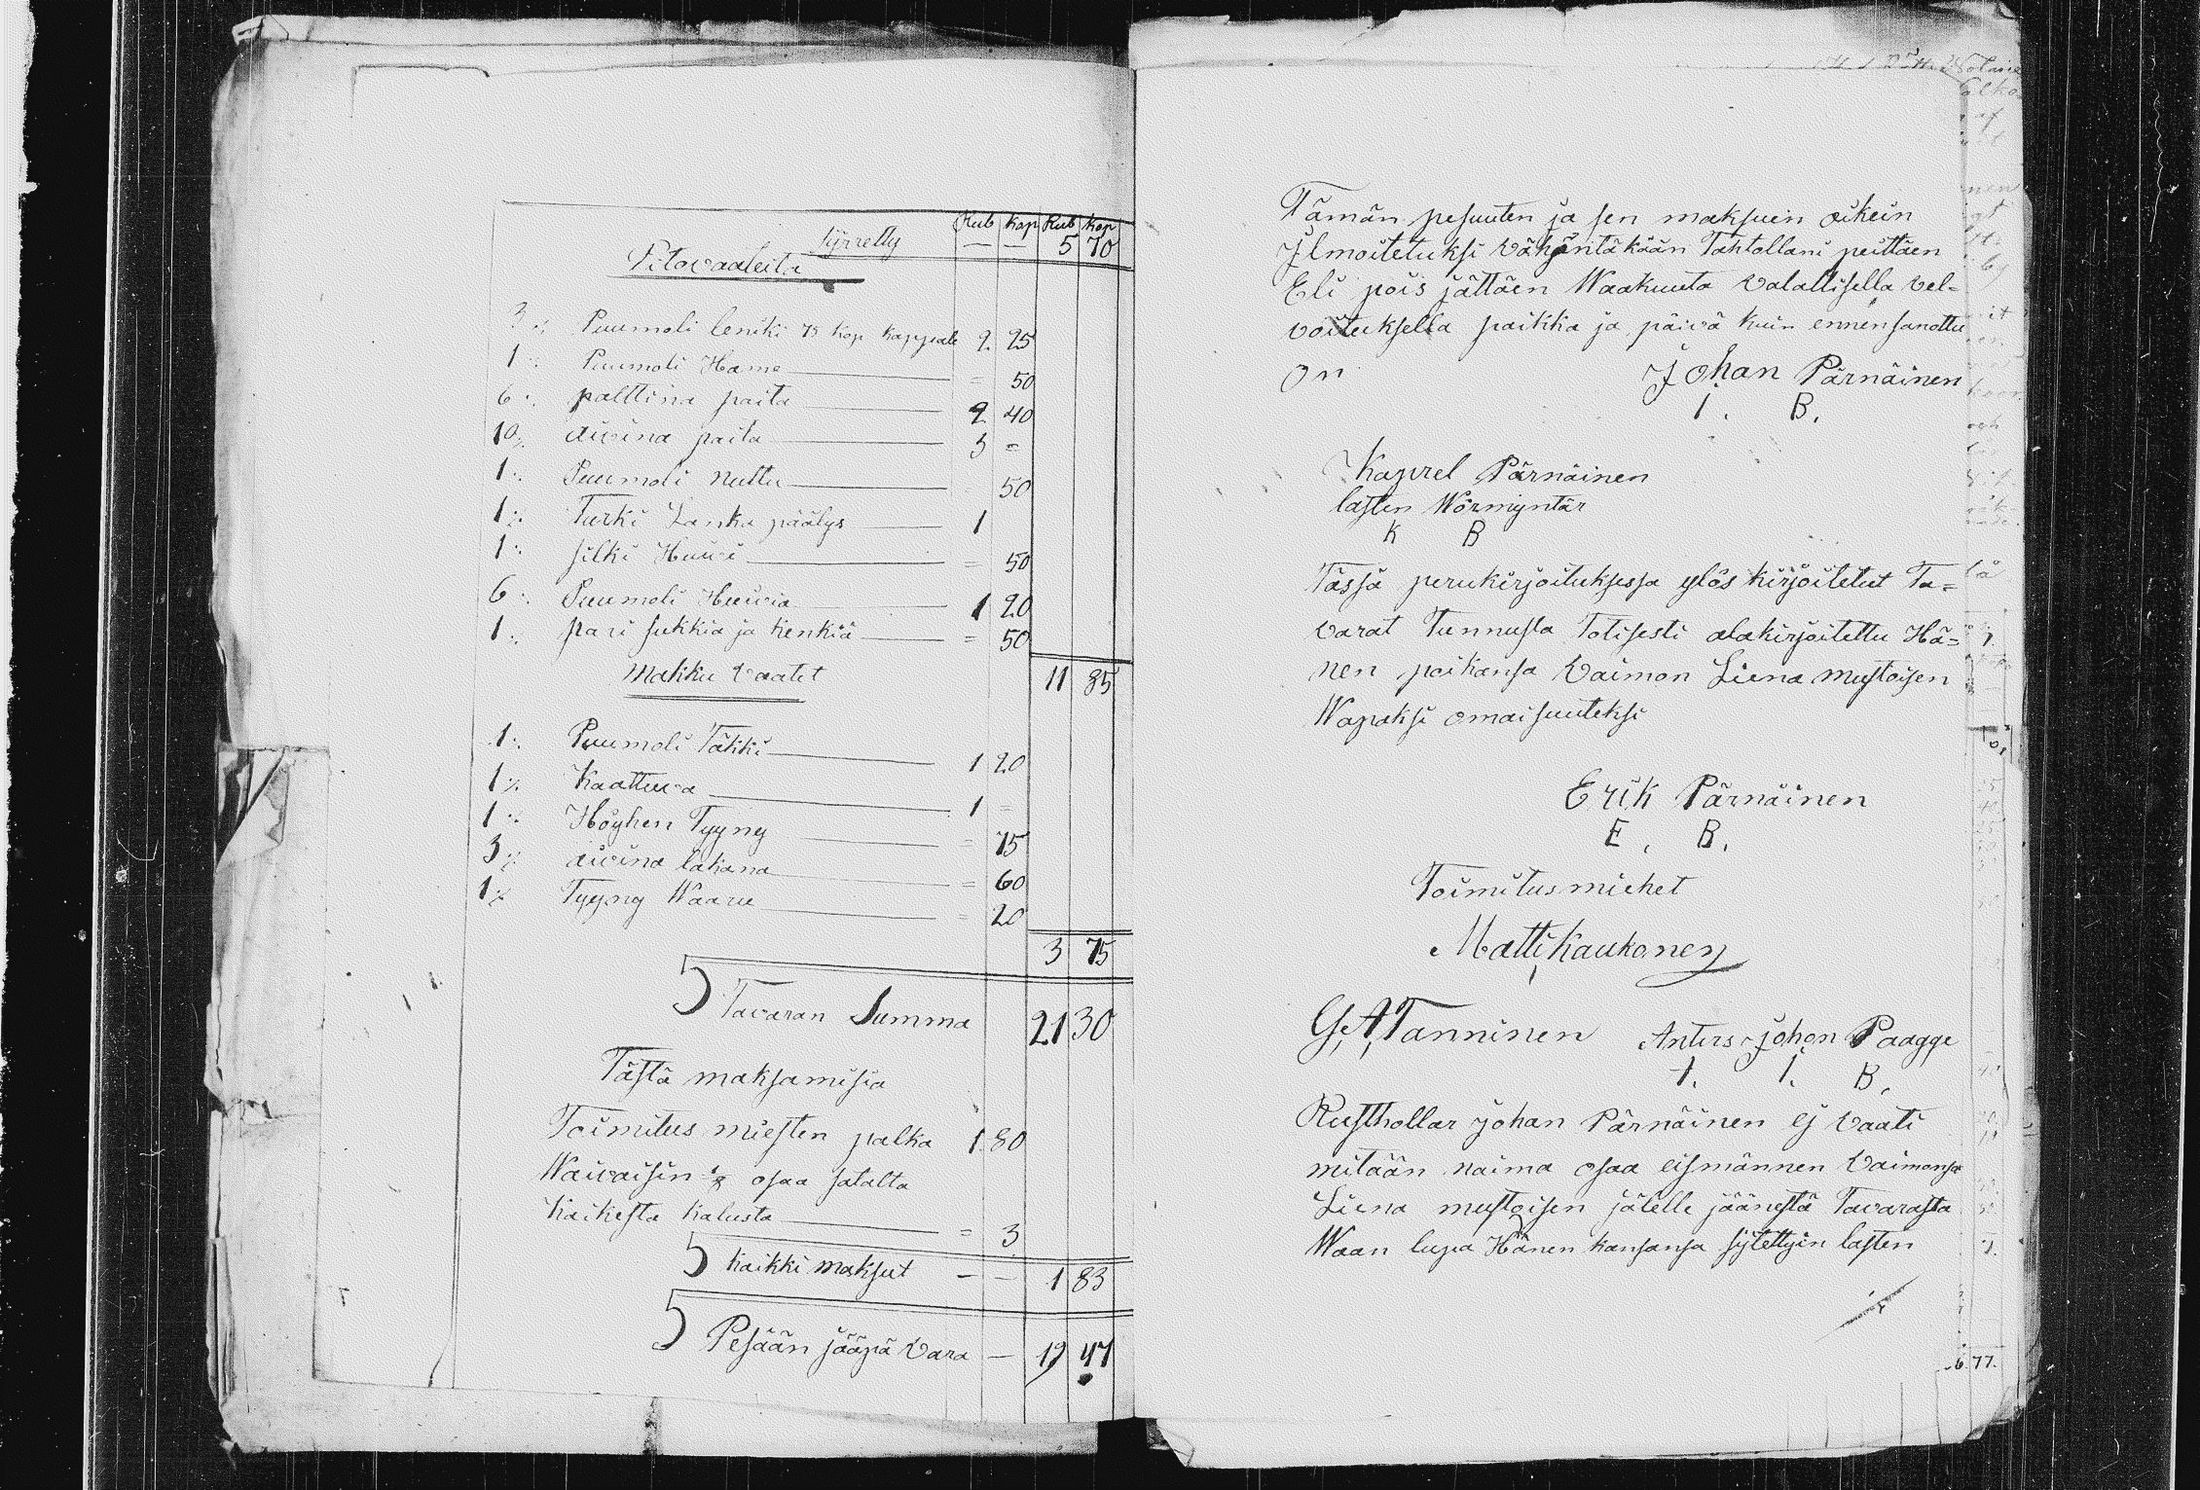 Rub Kop Rub Kop
Sÿrretty — — 5 70
Pitovaateita
3 :/. Puumoli leniki 75 Kop Kappale 2 25
1 :/. Puumoli Hame — = 50
6 :/. palttina paita — 2 40
10 :/. aivina paita — 3 =
1 :/. Puumoli nuttu — 50
1 :/. Turki Lanka päälys — 1
1 :/. silki Huivi — = 50
6 :/. Puumoli Huivia — 1 20
1 :/. pari sukkia ja kenkiä — = 50
11 85
Makku vaatet
1 :/. Puumoli Täkki — 1 20
1 :/. Kaattuva — 1 =
1 :/. Höyhen Tyyny — = 75
3 :/. aivina lakana — = 60
1 :/. Tyyny Waaru — = 20
3 75
Tavaran Summa 21 30
Tästä maksamisia
Toimitus miesten palka 1 80
Waivaisin osaa satalta
kaikesta kalusta — = 3
kaikki maksut — — 1 83
Pesään jääpä vara — 19 47
Tämän pesuuten ja sen maksuin oikein
Ilmoitetuksi vähäntäkään Tahtollani peittäen
Eli pois jättäen Waakuuta valallisella vel-
voituksella paikka ja päivä kuin ennensanottu
on Johan Pärnäinen
I. B.
Kaprel Pärnäinen
lasten Wörmyntär
K B
Tässä perukirjoituksessa ylös kirjoitetut Ta=
varat Tunnusta Totisesti alakirjoitettu Hä=
nen poikansa Vaimon Liena mustoisen
Wapaksi omaisuuteksi
Erik Pärnäinen
E. B.
Toimitusmiehet
Matti Kaukonen
G. A Tanninen Anters Johan Paagge
A. I. B.
Rusthollar Johan Pärnäinen ej vaati
mitään naima osaa eismännen Vaimonsa
Liena mustoisen jälelle jäänestä Tavarasta
Waan lupa Hänen kansansa sÿtettyin lasten
6.77.